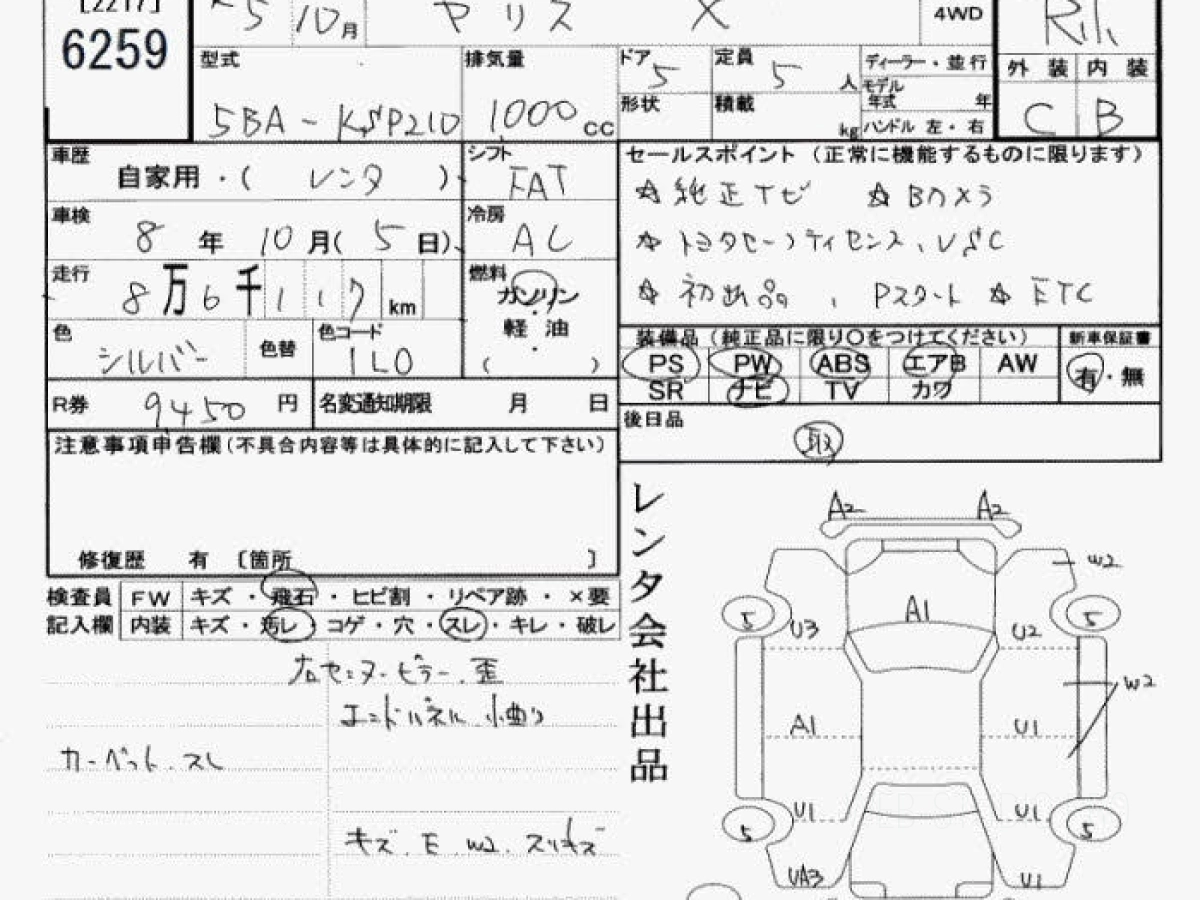 [2217]
6259
5 10 月 ヤリス X 4WD
型式 排気量 ドア 5 定員 5 人 ディーラー・並行
モデル年式 年
外装 内装
5BA-KSP210 1000 cc 形状 積載 kg ハンドル 左・右 C B
車歴 自家用・( レンタ ) シフト FAT
セールスポイント (正常に機能するものに限ります)
☆ 純正ナビ ☆ Bカメラ
車検 8 年 10 月( 5 日) 冷房 AC
☆ トヨタセーフティセンス、VSC
走行 8 万 6 千 1 1 7 km 燃料 ガソリン
軽油
( )
☆ 初出品、Pスタート ☆ ETC
色 シルバー 色替 色コード 1L0
装備品 (純正品に限り○をつけてください) 新車保証書
PS PW ABS エアB AW 有・無
SR ナビ TV カワ
R券 9450 円 名変通知期限 月 日
後日品 取
注意事項申告欄(不具合内容等は具体的に記入して下さい)
修復歴 有 〔箇所 〕
検査員 FW キズ・飛石・ヒビ割・リペア跡・×要
記入欄 内装 キズ・汚レ・コゲ・穴・スレ・キレ・破レ
右センターピラー、歪
エンドパネル 小曲り
カーペット、スレ
キズ、E、W2、スリキズ
レンタ会社出品
A2 A2
W2
5 A1 5
U3 U2
W2
A1 U1
U1 U1
5 5
UA3 U1